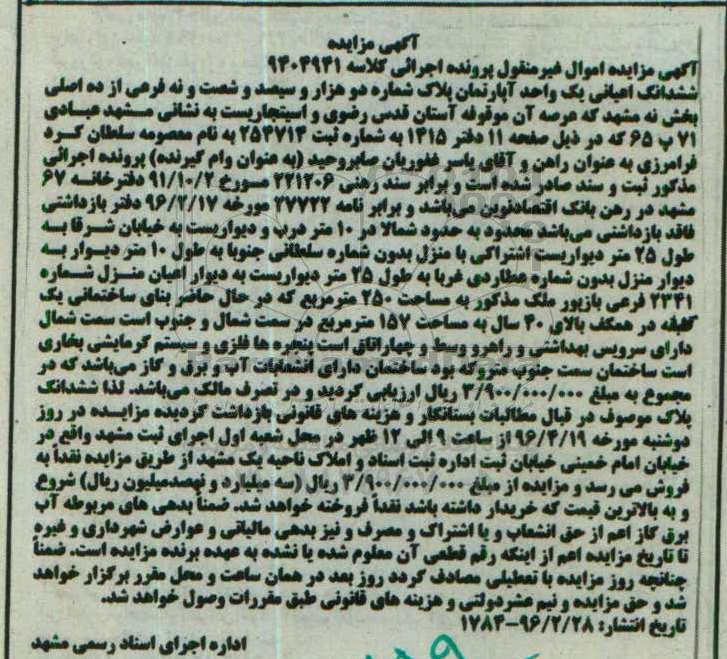 آگهی مزایده
آگهی مزایده اموال غیرمنقول پرونده اجرائی کلاسه ۹۴۰۴۹۴۱
ششدانگ اعیانی یک واحد آپارتمان پلاک شماره دو هزار و سیصد و شصت و نه فرعی از ده اصلی
بخش نه مشهد که عرصه آن موقوفه آستان قدس رضوی و استیجاریست به نشانی مشهد عبادی
۷۱ پ ۶۵ که در ذیل صفحه ۱۱ دفتر ۱۴۱۵ به شماره ثبت ۲۵۴۷۱۴ به نام معصومه سلطان کرد
فرامرزی به عنوان راهن و آقای یاسر غفوریان صابروحید (به عنوان وام گیرنده) پرونده اجرائی
مذکور ثبت و سند صادر شده است و برابر سند رهنی ۲۲۱۲۰۶ مسورخ ۹۱/۱۰/۲ دفترخانه ۶۷
مشهد در رهن بانک اقتصادنوین می‌باشد و برابر نامه ۲۷۷۲۲ مورخه ۹۶/۲/۱۷ دفتر بازداشتی
فاقد بازداشتی می‌باشد محدود به حدود شمالا در ۱۰ متر درب و دیواریست به خیابان شرقا به
طول ۲۵ متر دیواریست اشتراکی با منزل بدون شماره سلطانی جنوبا به طول ۱۰ متر دیوار به
دیوار منزل بدون شماره عطاردی غربا به طول ۲۵ متر دیواریست به دیوار اعیان منزل شماره
۲۳۴۱ فرعی بازپور ملک مذکور به مساحت ۲۵۰ مترمربع که در حال حاضر بنای ساختمانی یک
طبقه در همکف بالای ۴۰ سال به مساحت ۱۵۷ مترمربع در سمت شمال و جنوب است سمت شمال
دارای سرویس بهداشتی و راهرو وسط و چهاراتاق است پنجره ها فلزی و سیستم گرمایشی بخاری
است ساختمان سمت جنوب متروکه بود ساختمان دارای انشعابات آب و برق و گاز می‌باشد که در
مجموع به مبلغ ۳/۹۰۰/۰۰۰/۰۰۰ ریال ارزیابی گردید و در تصرف مالک می‌باشد. لذا ششدانگ
پلاک موصوف در قبال مطالبات بستانکار و هزینه های قانونی بازداشت گردیده مزایده در روز
دوشنبه مورخه ۹۶/۴/۱۹ از ساعت ۹ الی ۱۲ ظهر در محل شعبه اول اجرای ثبت مشهد واقع در
خیابان امام خمینی خیابان ثبت اداره ثبت اسناد و املاک ناحیه یک مشهد از طریق مزایده نقدا به
فروش می رسد و مزایده از مبلغ ۳/۹۰۰/۰۰۰/۰۰۰ ریال (سه میلیارد و نهصدمیلیون ریال) شروع
و به بالاترین قیمت که خریدار داشته باشد نقداً فروخته خواهد شد. ضمناً بدهی های مربوطه آب
برق گاز اعم از حق انشعاب و یا اشتراک و مصرف و نیز بدهی مالیاتی و عوارض شهرداری و غیره
تا تاریخ مزایده اعم از اینکه رقم قطعی آن معلوم شده یا نشده به عهده برنده مزایده است. ضمناً
چنانچه روز مزایده با تعطیلی مصادف گردد روز بعد در همان ساعت و محل مقرر برگزار خواهد
شد و حق مزایده و نیم عشردولتی و هزینه های قانونی طبق مقررات وصول خواهد شد.
تاریخ انتشار: ۹۶/۲/۲۸-۱۷۸۴
اداره اجرای اسناد رسمی مشهد